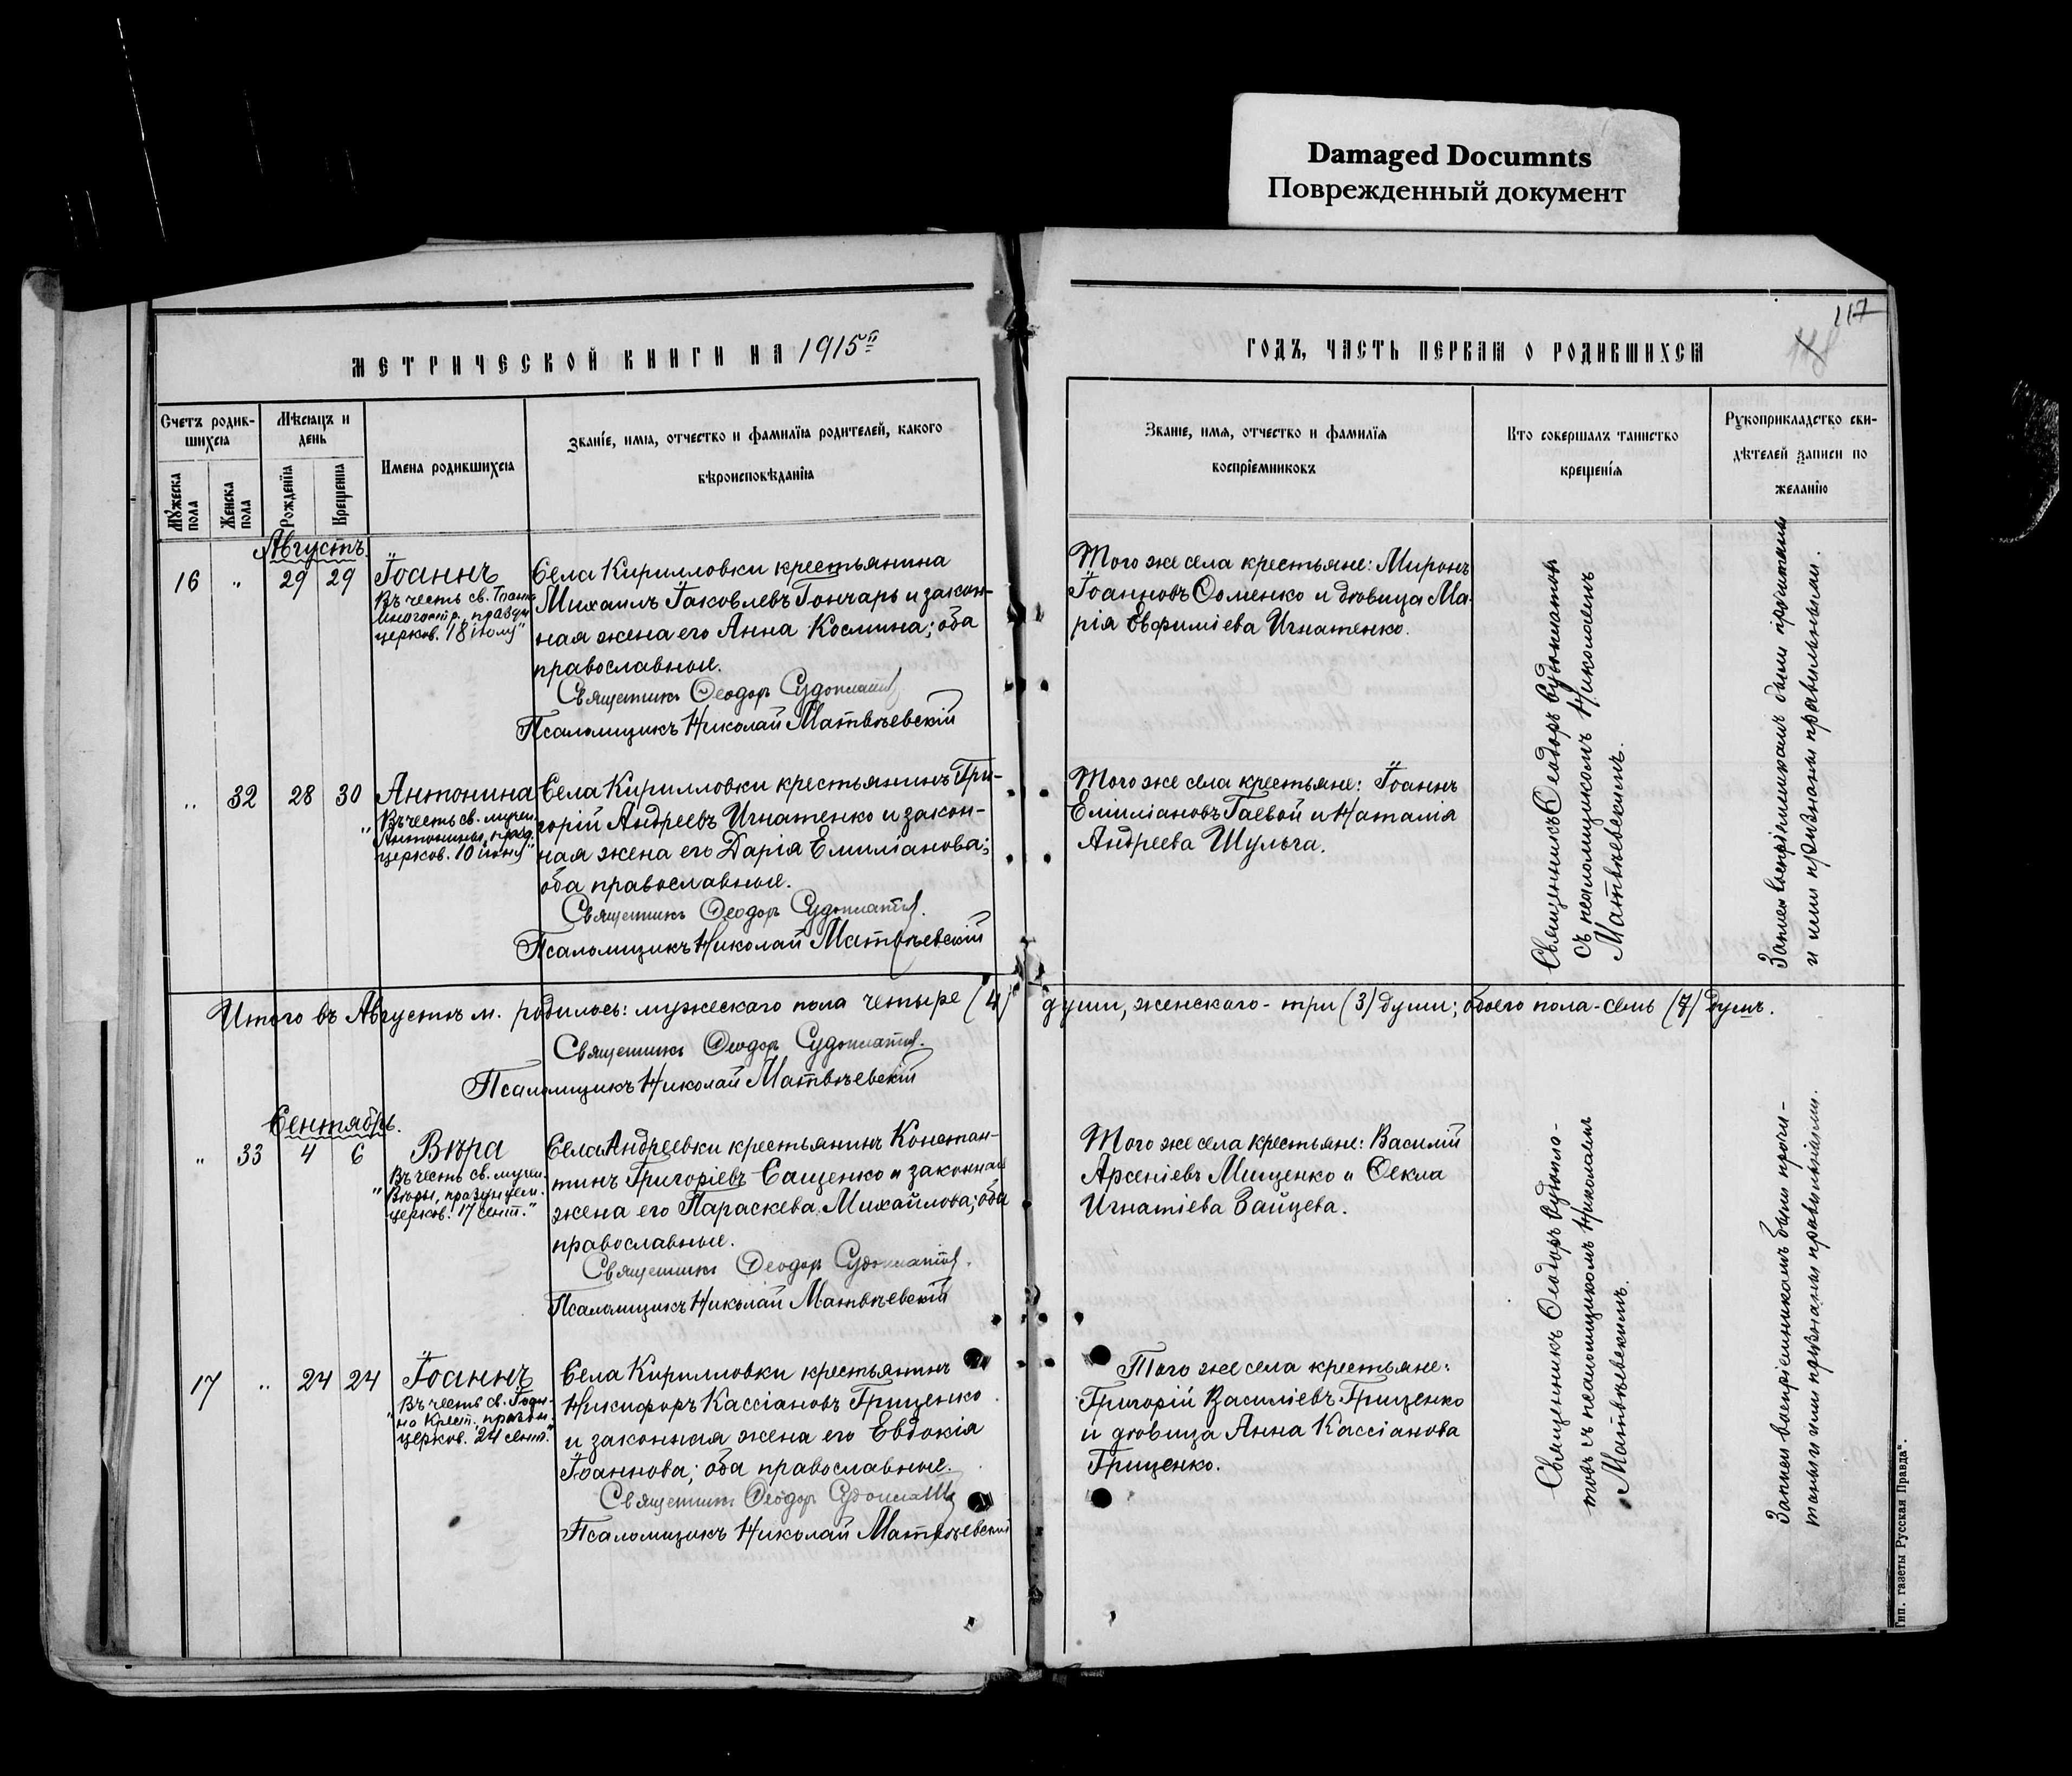 Damaged Documnts
Поврежденный документ
117
МЕТРИЧЕСКОЙ КНИГИ НА 1915й
ГОДЪ, ЧАСТЬ ПЕРВАЯ О РОДИВШИХСЯ
Счетъ родив-
шихся
Мѣсяцъ и
день
Мужеска
пола
Женска
пола
Рожденія
Крещенія
Имена родившихся
Званіе, имя, отчество и фамилія родителей, какого
вѣроисповѣданія
Званіе, имя, отчество и фамилія
воспріемниковъ
Кто совершалъ таинство
крещенія
Рукоприкладство сви-
дѣтелей записи по
желанію
Августъ.
16 " 29 29
Іоаннъ
Въ честь св. Іоанна
Многостр., праздн.
церков. 18 іюлу"
Села Кирилловки крестьянина
Михаилъ Іаковлевъ Гончаръ и закон-
ная жена его Анна Космина; оба
православные.
Священникъ Ѳеодоръ Судоплатов
Псаломщикъ Николай Матвѣевскій
Того же села крестьяне: Миронъ
Іоанновъ Ѳоменко и вдовица Ма-
рія Евфиміева Игнатенко.
" 32 28 30
Антонина
Въ честь св. мучен.
Антонины, празд.
церков. 10 іюня"
Села Кирилловки крестьянинъ Гри-
горій Андреевъ Игнатенко и закон-
ная жена его Дарія Емиліанова;
оба православные.
Священникъ Ѳеодоръ Судоплатов.
Псаломщикъ Николай Матвѣевскій
Того же села крестьяне: Іоаннъ
Емиліановъ Гаевой и Наталія
Андреева Шульга.
Священникъ Ѳеодоръ Судоплатовъ
съ псаломщикомъ Николаемъ
Матвѣевскимъ.
Записи воспріемникамъ были прочитаны
и ими признаны правильными.
Итого въ Августѣ м. родилось: мужескаго пола четыре (4) души, женскаго - три (3) души; обоего пола - семь (7) душъ.
Священникъ Ѳеодоръ Судоплатов.
Псаломщикъ Николай Матвѣевскій
Сентябрь.
" 33 4 6
Вѣра
Въ честь св. мучен.
"Вѣры, празднуем.
церков. 17 сент."
Села Андреевки крестьянинъ Констан-
тинъ Григоріевъ Сащенко и законная
жена его Параскева Михайлова; оба
православные.
Священникъ Ѳеодоръ Судоплатов.
Псаломщикъ Николай Матвѣевскій
Того же села крестьяне: Василій
Арсеніевъ Мищенко и Ѳекла
Игнатіева Зайцева.
17 " 24 24
Іоаннъ
Въ честь св. Іоан-
на Крест., праздн.
церков. 24 сент."
Села Кирилловки крестьянинъ
Никифоръ Кассіановъ Гриценко
и законная жена его Евдокія
Іоаннова; оба православные.
Священникъ Ѳеодоръ Судоплатов
Псаломщикъ Николай Матвѣевскій
Того же села крестьяне:
Григорій Василіевъ Гриценко
и вдовица Анна Кассіанова
Гриценко.
Священникъ Ѳеодоръ Судопла-
товъ съ псаломщикомъ Николаемъ
Матвѣевскимъ.
Записи воспріемникамъ были прочи-
таны и ими признаны правильными.
Тип. газеты Русская Правда".